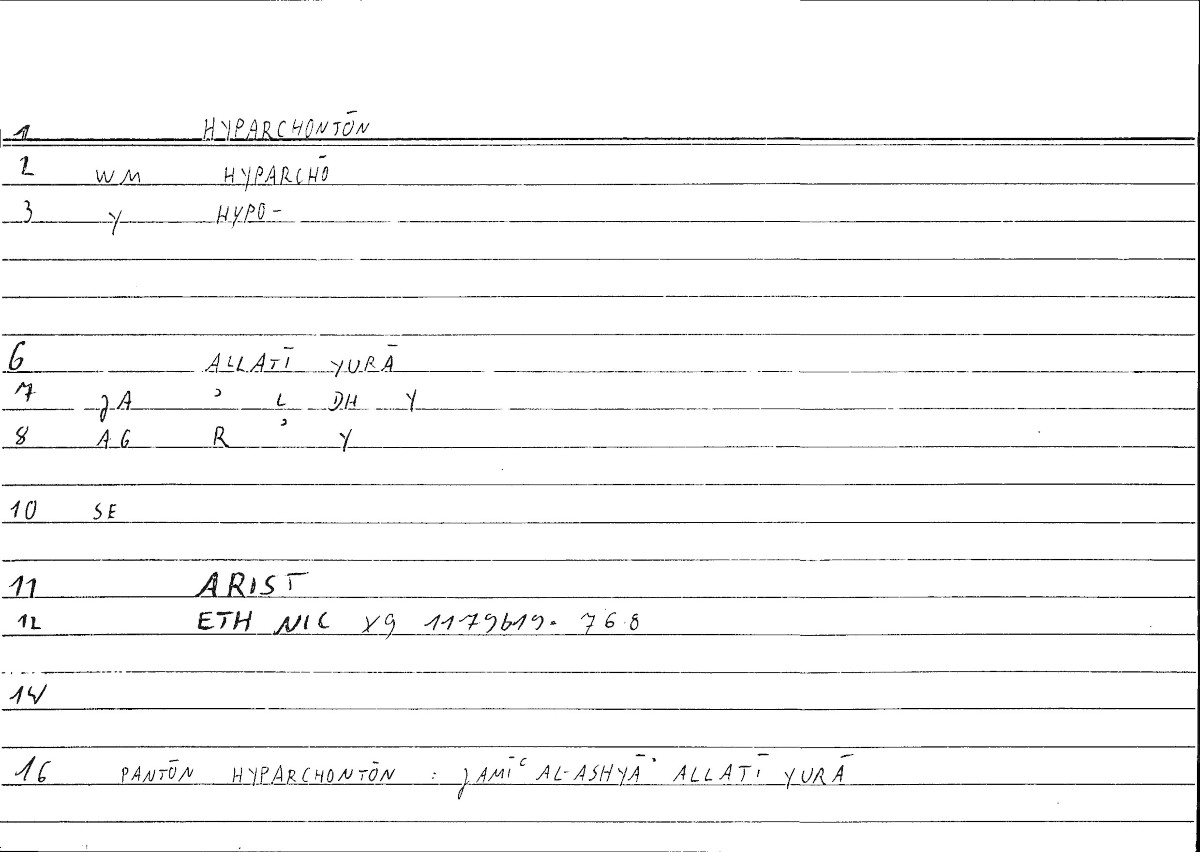 1 HYPARCHONTŌN
2 WM HYPARCHŌ
3 Y HYPO-
6 ALLATĪ YURĀ
7 JA ʾ L DH Y
8 AG R ʾ Y
10 SE
11 ARIST
12 ETH NIC X9 1179b19. 768
14
16 PANTŌN HYPARCHONTŌN : JAMĪʿ AL-ASHYĀʾ ALLATĪ YURĀ